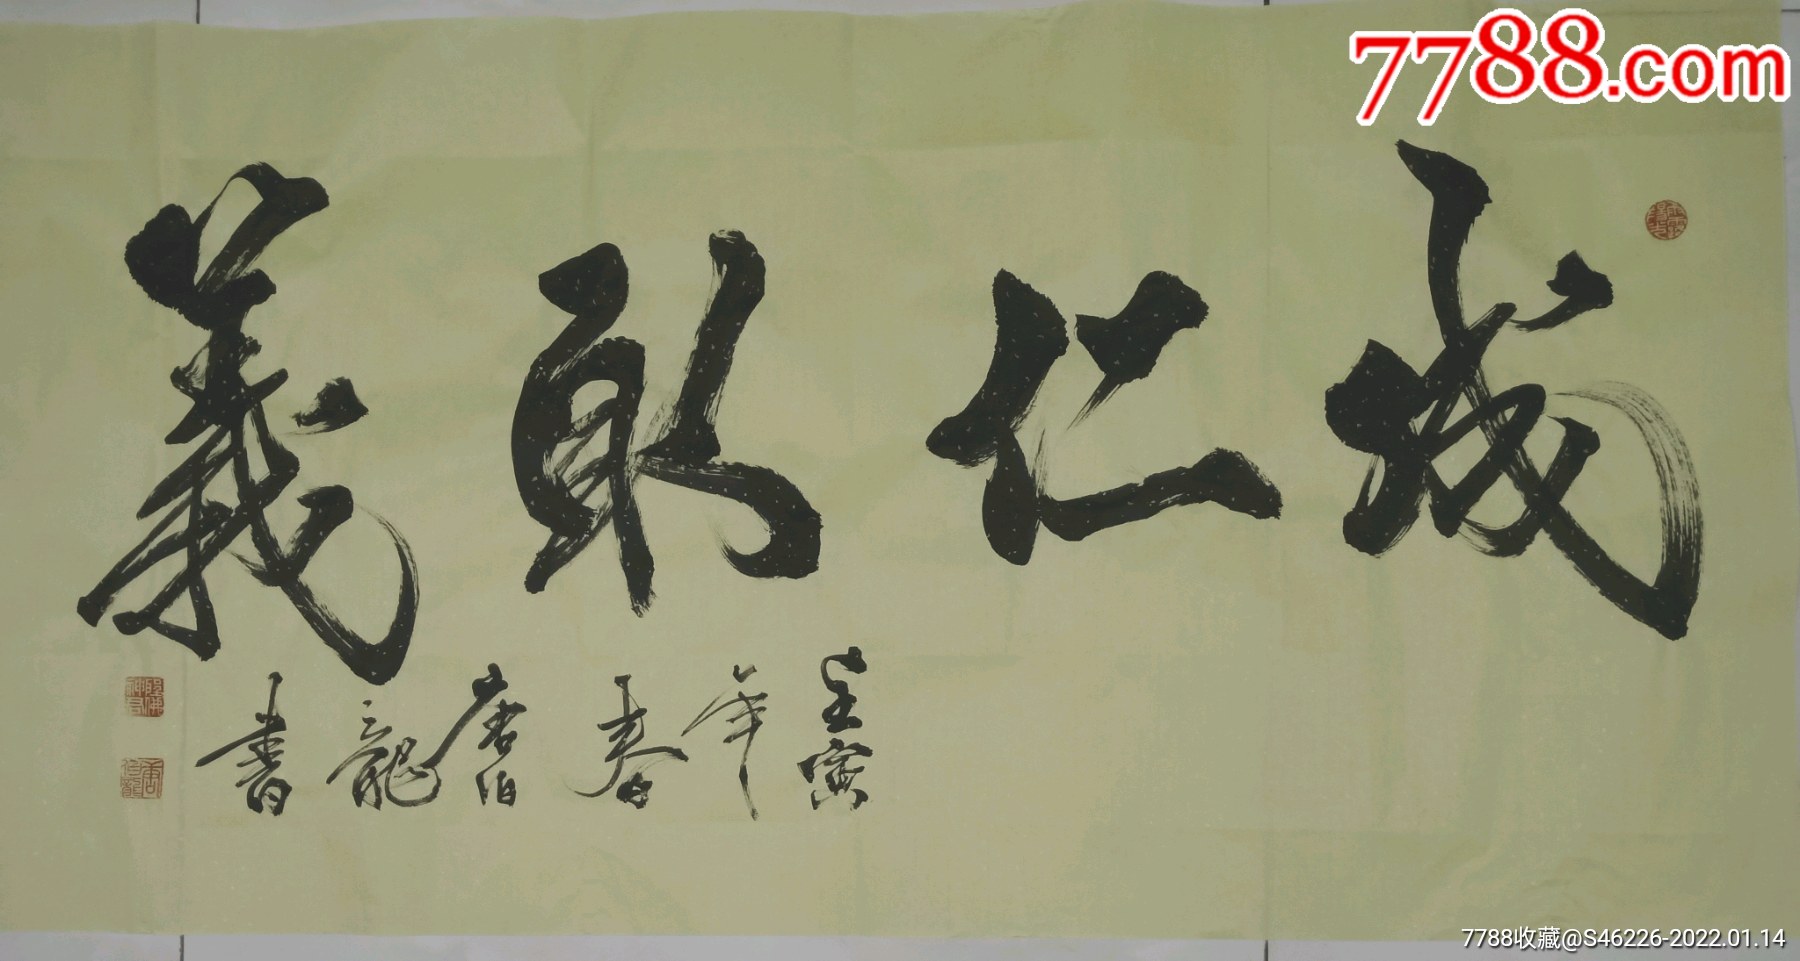 7788.com
成仁取義
壬寅年春唐伯龍書
7788收藏@S46226-2022.01.14